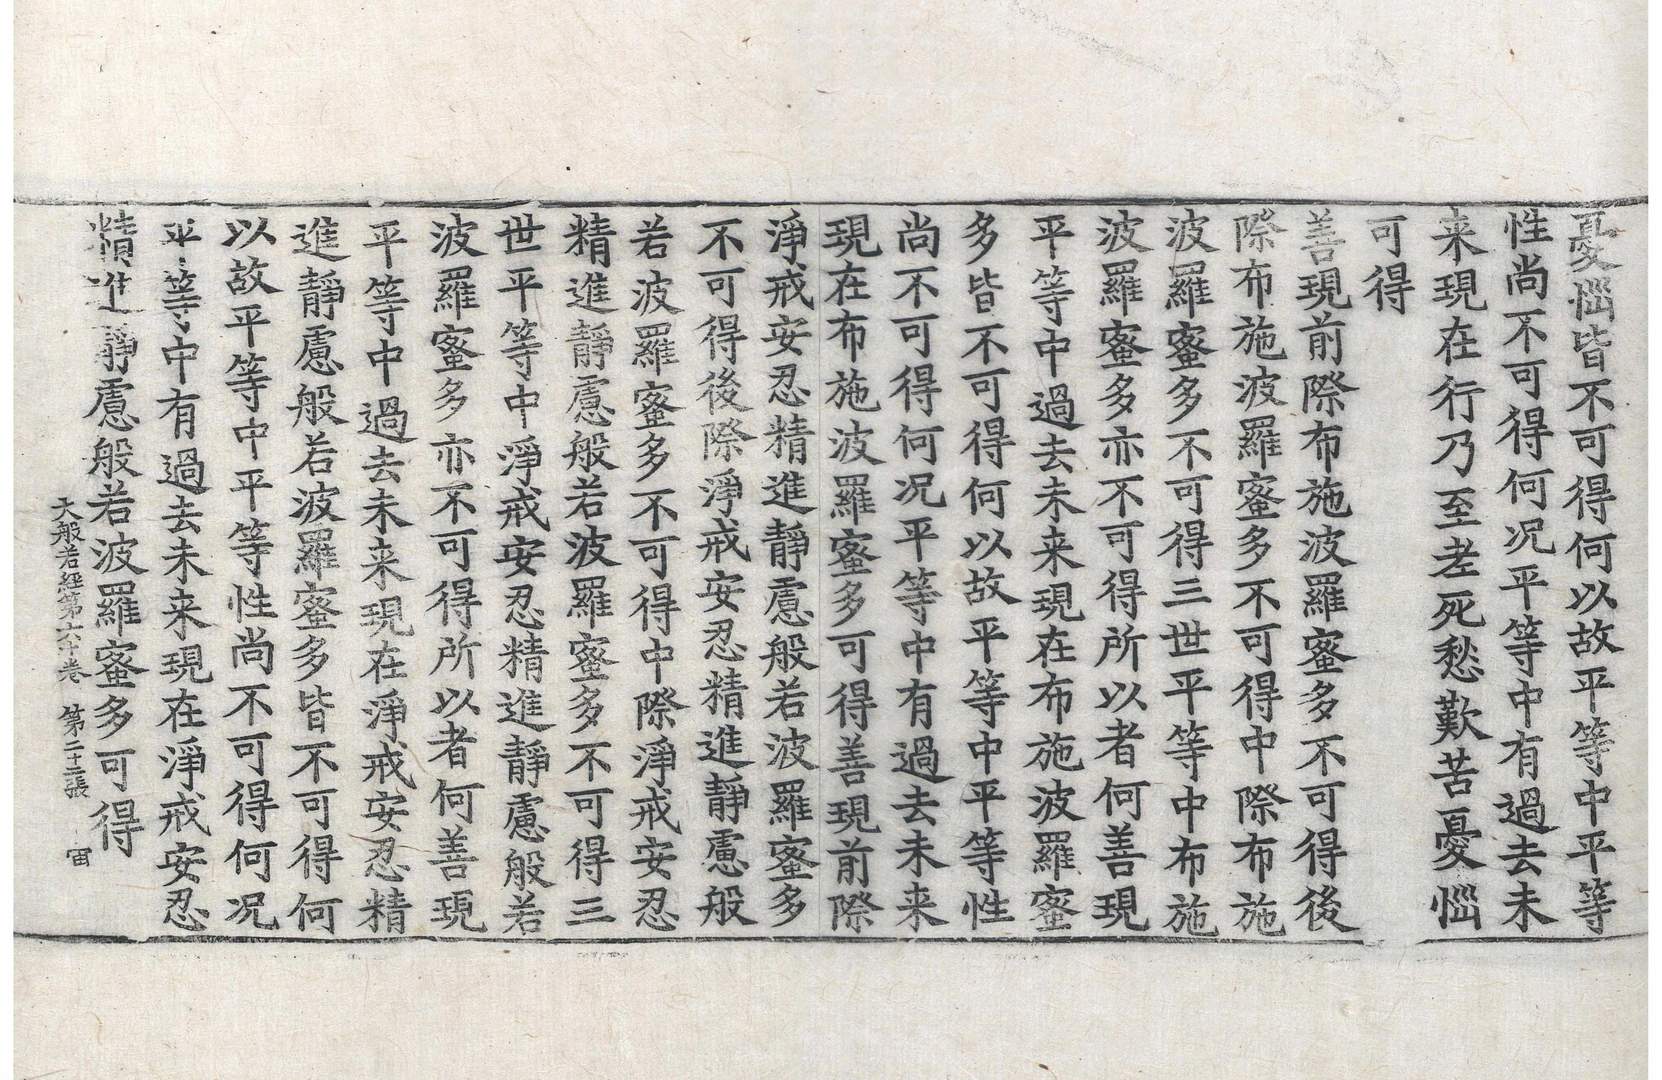 憂惱皆不可得何以故平等中平等
性尚不可得何况平等中有過去未
来現在行乃至老死愁歎苦憂惱
可得
善現前際布施波羅蜜多不可得後
際布施波羅蜜多不可得中際布施
波羅蜜多不可得三世平等中布施
波羅蜜多亦不可得所以者何善現
平等中過去未来現在布施波羅蜜
多皆不可得何以故平等中平等性
尚不可得何况平等中有過去未来
現在布施波羅蜜多可得善現前際
淨戒安忍精進靜慮般若波羅蜜多
不可得後際淨戒安忍精進靜慮般
若波羅蜜多不可得中際淨戒安忍
精進靜慮般若波羅蜜多不可得三
世平等中淨戒安忍精進靜慮般若
波羅蜜多亦不可得所以者何善現
平等中過去未来現在淨戒安忍精
進靜慮般若波羅蜜多皆不可得何
以故平等中平等性尚不可得何况
平等中有過去未来現在淨戒安忍
精進靜慮般若波羅蜜多可得
大般若經第六十卷 第二十二張 宙